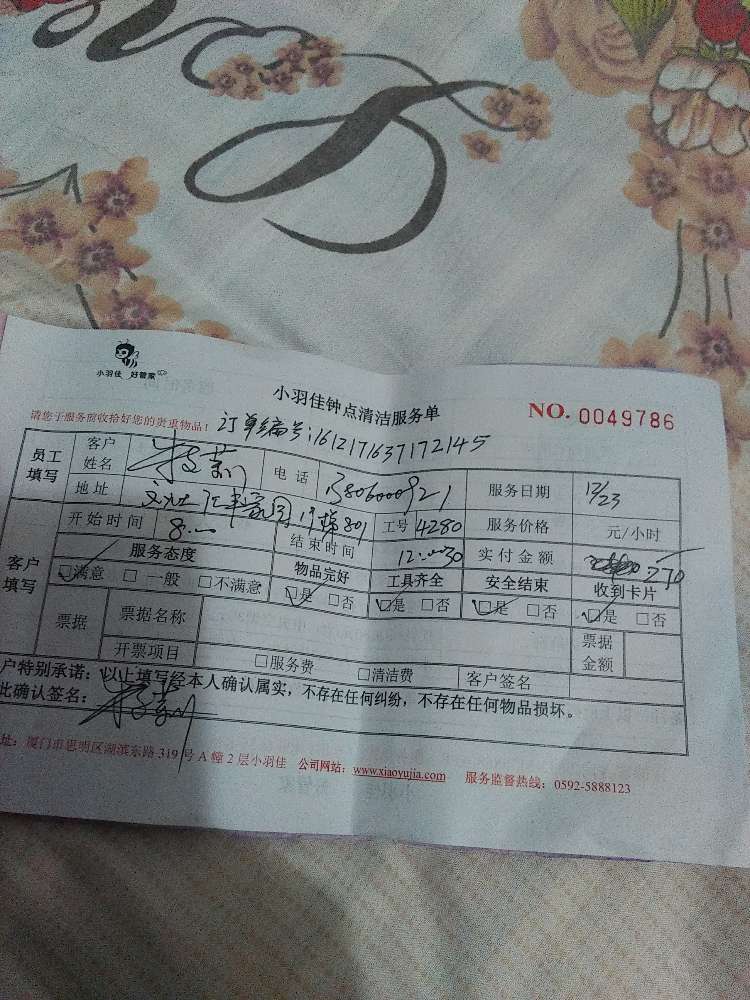 小羽佳 好管家
小羽佳钟点清洁服务单
NO. 0049786
请您于服务前收拾好您的贵重物品！
订单编号：1612171637172145
员工填写
客户姓名
电话
服务日期 12/23
地址
801
工号 4280
服务价格 元/小时
客户填写
开始时间 8:00
结束时间
实付金额 270
服务态度 物品完好 工具齐全 安全结束 收到卡片
☑满意 □一般 □不满意 ☑是 □否 ☑是 □否 ☑是 □否 ☑是 □否
票据
票据名称
票据金额
开票项目 □服务费 □清洁费 客户签名
户特别承诺：以上填写经本人确认属实，不存在任何纠纷，不存在任何物品损坏。
此确认签名：
址：厦门市思明区湖滨东路 319 号 A 幢 2 层小羽佳 公司网站：www.xiaoyujia.com 服务监督热线：0592-5888123